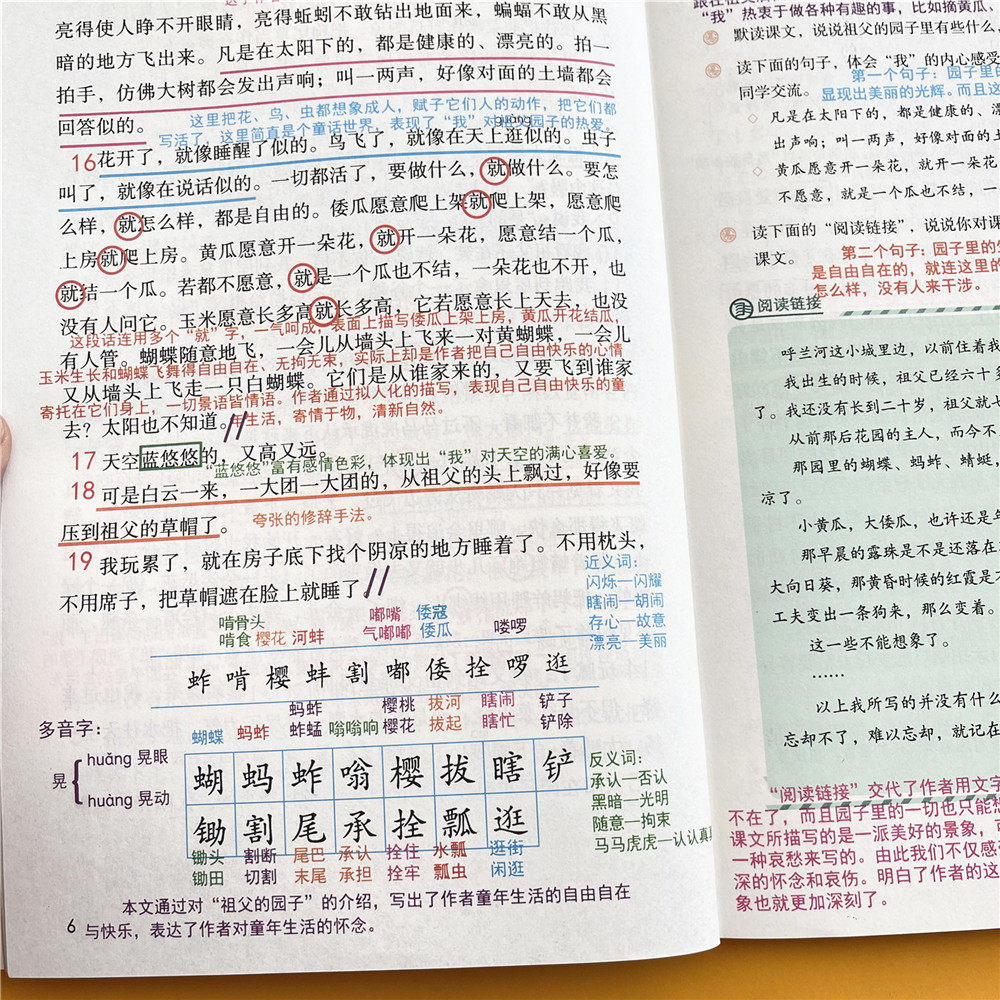 亮得使人睁不开眼睛，亮得蚯蚓不敢钻出地面来，蝙蝠不敢从黑
暗的地方飞出来。凡是在太阳下的，都是健康的、漂亮的。拍一
拍手，仿佛大树都会发出声响；叫一两声，好像对面的土墙都会
回答似的。
这里把花、鸟、虫都想象成人，赋予它们人的动作，把它们都
写活了，这里简直是个童话世界，表现了“我”对祖父园子的热爱。
guàng
16花开了，就像睡醒了似的。鸟飞了，就像在天上逛似的。虫子
叫了，就像在说话似的。一切都活了，要做什么，就做什么。要怎
么样，就怎么样，都是自由的。倭瓜愿意爬上架就爬上架，愿意爬
上房就爬上房。黄瓜愿意开一朵花，就开一朵花，愿意结一个瓜，
就结一个瓜。若都不愿意，就是一个瓜也不结，一朵花也不开，也
没有人问它。玉米愿意长多高就长多高，它若愿意长上天去，也没
这段话连用多个“就”字，一气呵成，表面上描写倭瓜上架上房，黄瓜开花结瓜，
有人管。蝴蝶随意地飞，一会儿从墙头上飞来一对黄蝴蝶，一会儿
玉米生长和蝴蝶飞舞得自由自在、无拘无束，实际上却是作者把自己自由快乐的心情
又从墙头上飞走一只白蝴蝶。它们是从谁家来的，又要飞到谁家
寄托在它们身上，一切景语皆情语。作者通过拟人化的描写，表现自己自由快乐的童
去？太阳也不知道。
年生活，寄情于物，清新自然。
17 天空蓝悠悠的，又高又远。
“蓝悠悠”富有感情色彩，体现出“我”对天空的满心喜爱。
18 可是白云一来，一大团一大团的，从祖父的头上飘过，好像要
压到祖父的草帽了。
夸张的修辞手法。
19 我玩累了，就在房子底下找个阴凉的地方睡着了。不用枕头，
不用席子，把草帽遮在脸上就睡了。
近义词：
闪烁—闪耀
瞎闹—胡闹
存心—故意
漂亮—美丽
啃骨头 嘟嘴 倭寇
啃食 樱花 河蚌 气嘟嘟 倭瓜 喽啰
蚱 啃 樱 蚌 割 嘟 倭 拴 啰 逛
蚂蚱 樱桃 拔河 瞎闹 铲子
蝴蝶 蚂蚱 蚱蜢 嗡嗡响 樱花 拔起 瞎忙 铲除
多音字：
晃
huǎng 晃眼
huàng 晃动
蝴 蚂 蚱 嗡 樱 拔 瞎 铲
锄 割 尾 承 拴 瓢 逛
锄头 割断 尾巴 承认 拴住 水瓢 逛街
锄田 切割 末尾 承担 拴牢 瓢虫 闲逛
反义词：
承认—否认
黑暗—光明
随意—拘束
马马虎虎—认认真真
本文通过对“祖父的园子”的介绍，写出了作者童年生活的自由自在
与快乐，表达了作者对童年生活的怀念。
6
“我”热衷于做各种有趣的事，比如摘黄瓜、
默读课文，说说祖父的园子里有些什么，
读下面的句子，体会“我”的内心感受
同学交流。
第一个句子：园子里的
显现出美丽的光辉。而且这
凡是在太阳下的，都是健康的、漂
出声响；叫一两声，好像对面的土
黄瓜愿意开一朵花，就开一朵花
不愿意，就是一个瓜也不结，一
读下面的“阅读链接”，说说你对课
课文。
第二个句子：园子里的
是自由自在的，就连这里的
怎么样，没有人来干涉。
阅读链接
呼兰河这小城里边，以前住着我
我出生的时候，祖父已经六十多
了。我还没有长到二十岁，祖父就七
从前那后花园的主人，而今不
那园里的蝴蝶、蚂蚱、蜻蜓，
凉了。
小黄瓜，大倭瓜，也许还是年
那早晨的露珠是不是还落在
大向日葵，那黄昏时候的红霞是不
工夫变出一条狗来，那么变着。
这一些不能想象了。
……
以上我所写的并没有什么
忘却不了，难以忘却，就记在
“阅读链接”交代了作者用文字
不在了，而且园子里的一切也只能想
课文所描写的是一派美好的景象，可
一种哀愁来写的。由此我们不仅感
深的怀念和哀伤。明白了作者的这
象也就更加深刻了。